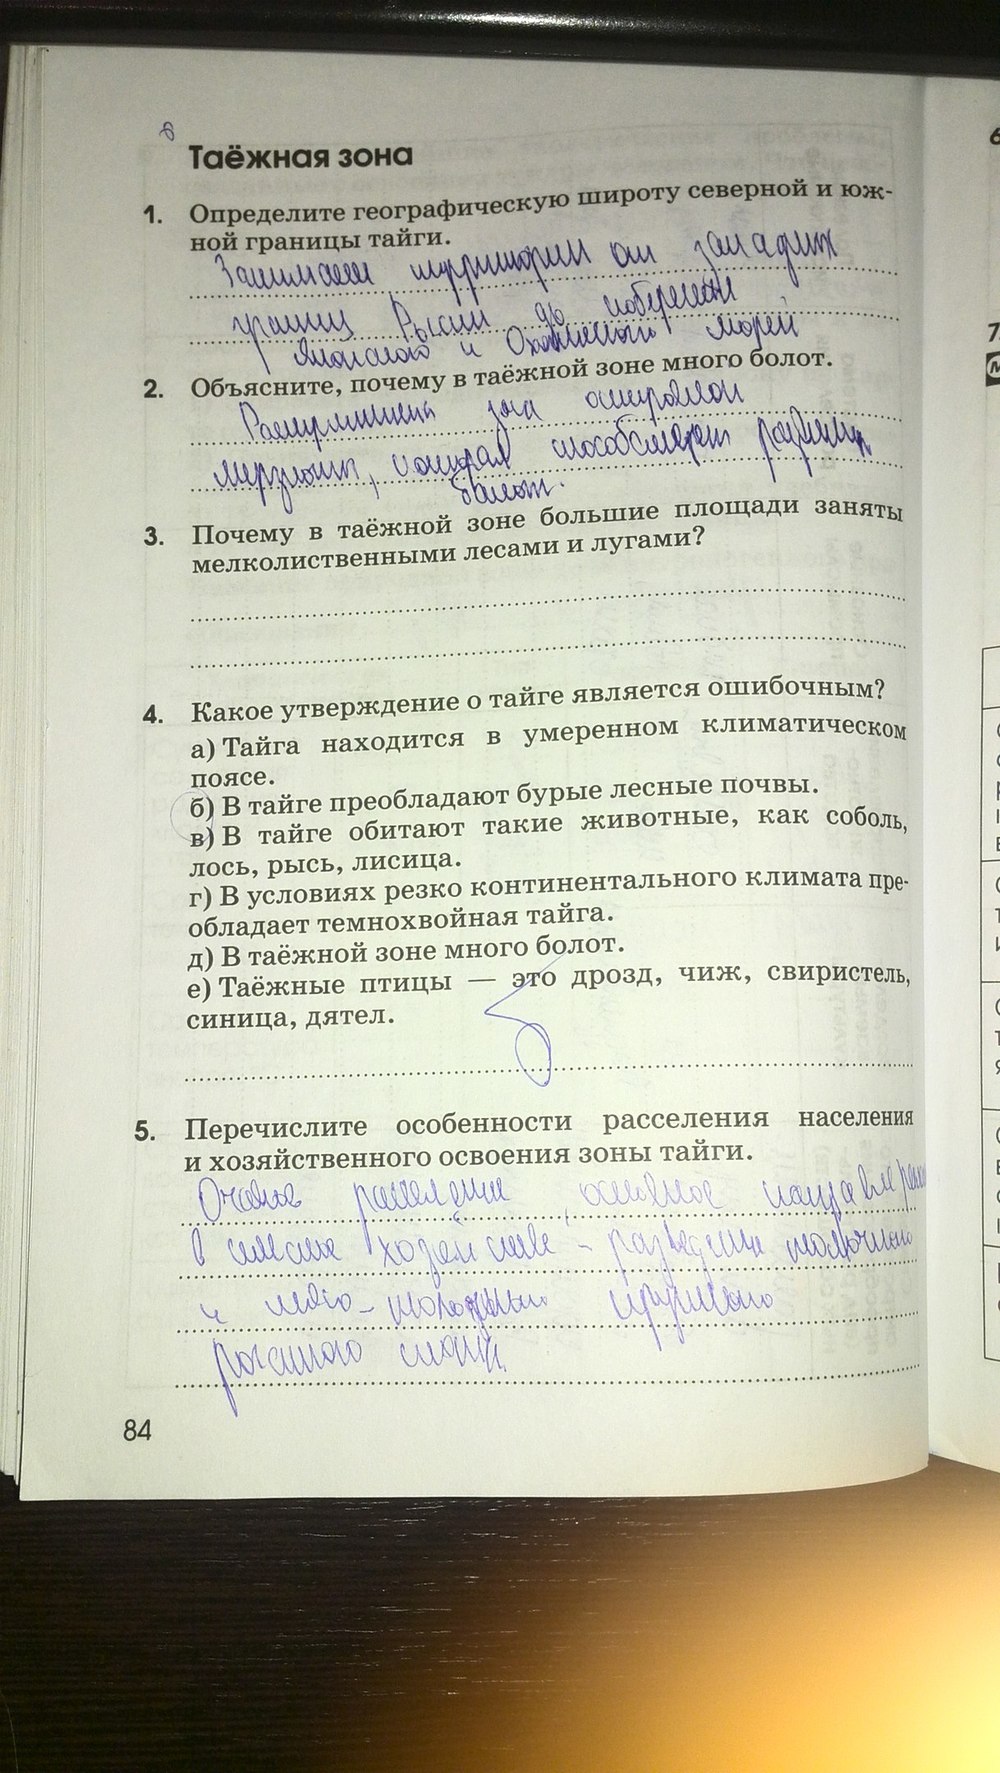 Таёжная зона
1. Определите географическую широту северной и юж-
ной границы тайги.
Занимает территории от западных
границ России до побережий
Японского и Охотского морей
2. Объясните, почему в таёжной зоне много болот.
зона островной
мерзлоты, которая способствует
болот.
3. Почему в таёжной зоне большие площади заняты
мелколиственными лесами и лугами?
4. Какое утверждение о тайге является ошибочным?
а) Тайга находится в умеренном климатическом
поясе.
б) В тайге преобладают бурые лесные почвы.
в) В тайге обитают такие животные, как соболь,
лось, рысь, лисица.
г) В условиях резко континентального климата пре-
обладает темнохвойная тайга.
д) В таёжной зоне много болот.
е) Таёжные птицы — это дрозд, чиж, свиристель,
синица, дятел.
5. Перечислите особенности расселения населения
и хозяйственного освоения зоны тайги.
расселение, основное
в хозяйстве – разведение молочного
и мясо-молочного крупного
рогатого скота
84
6
7